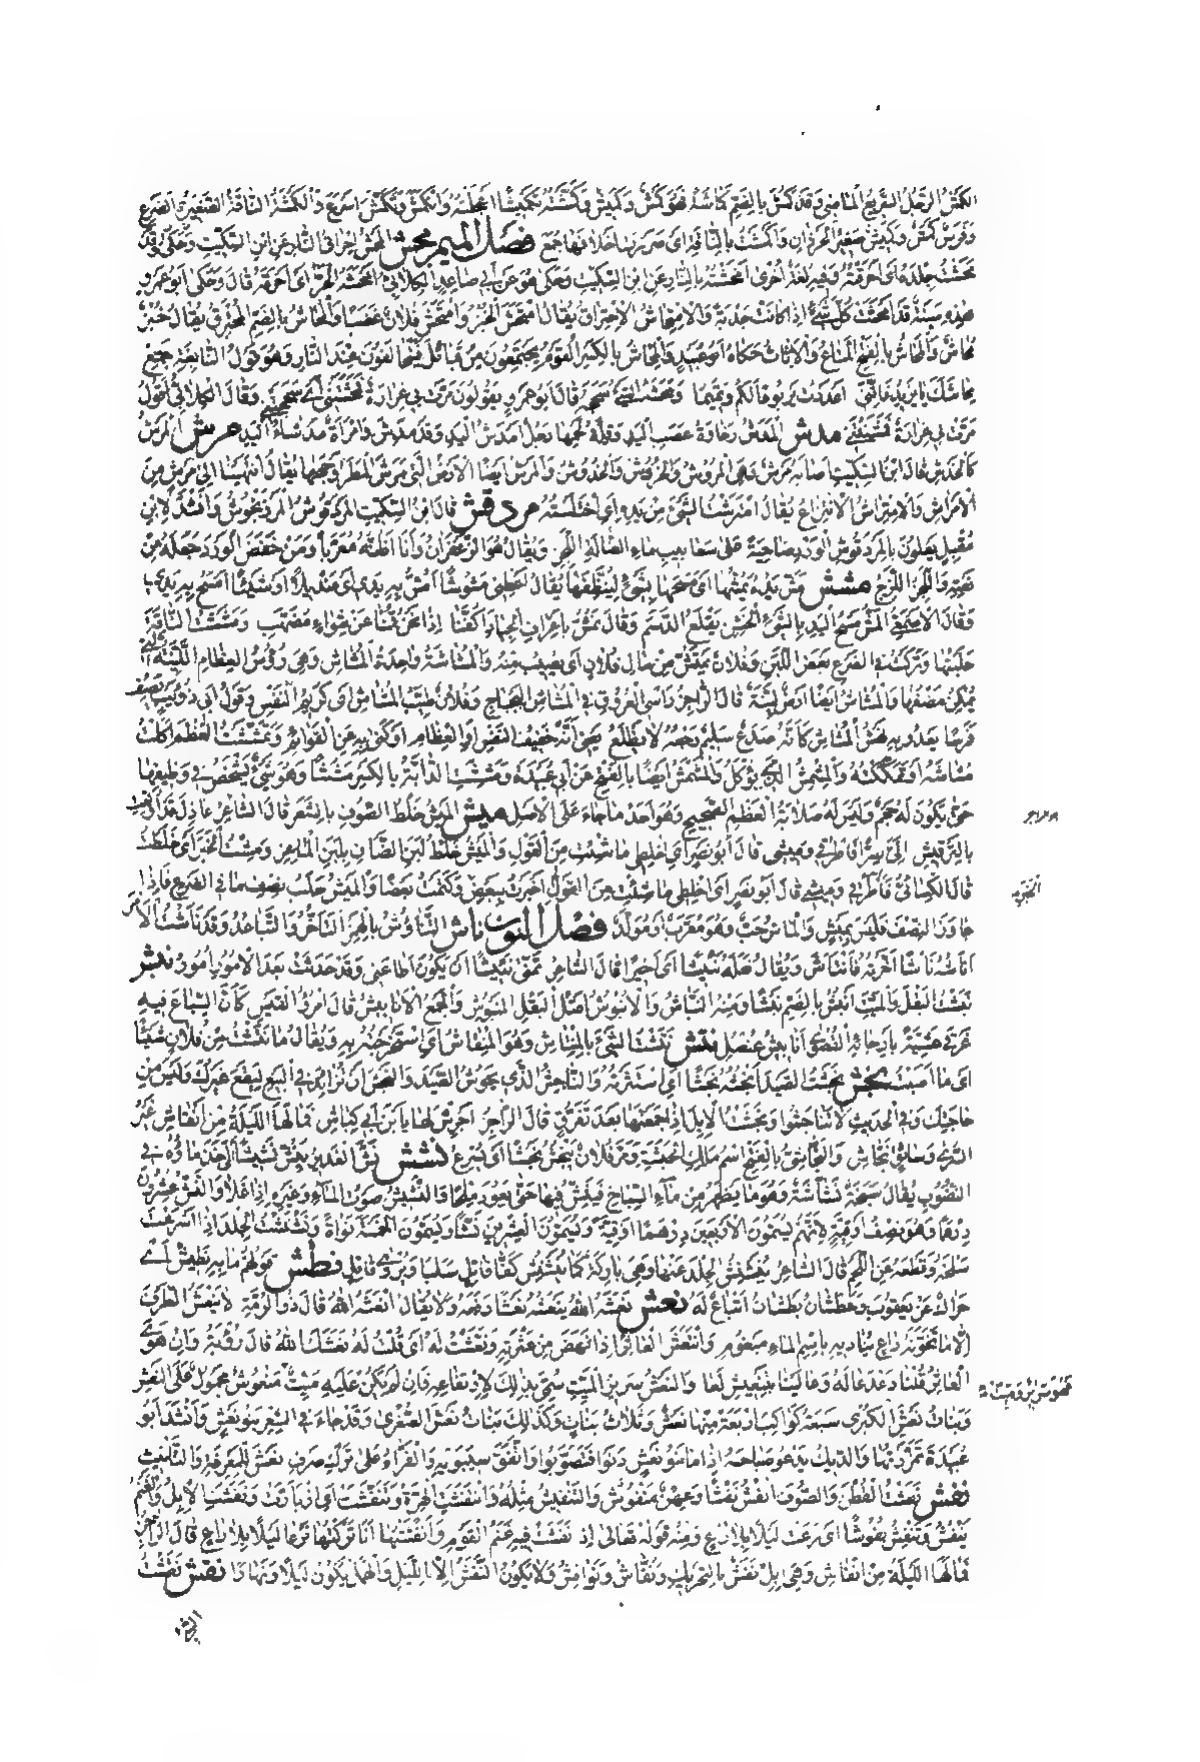 الكمش الرجل السريع الماضي وقد كمش بالضم كماشة فهو كمش وكميش وكمشته تكميشا اعجلته وانكمش وتكمش اسرع الكمشة الناقة الصغيرة الضرع
وفرس كمش وكميش صغير الجردان واكمشت بالناقة اى صررت اخلافها جمع فصل الميم محش المحش احراق النار عن ابن السكيت وحكى وقد
محشت جلده اى احرقته وفيه لغة اخرى امحشته بالنار عن ابن السكيت وحكى هو عن ابي صاعد الكلابي امحشه الحر اى احرقه قال وحكى ابو عمرو
هذه سنة قد امحشت كل شيء اذا كانت جدبة والامتحاش الاحتراق يقال امتحش الخبز وامتحش فلان غضبا والمحاش بالضم المحترق يقال خبز
محاش والمحاش بالفتح المتاع والاثاث حكاه ابو عبيد والمحاش بالكسر القوم يجتمعون من قبائل فيتحالفون عند النار وهو قول النابغة جمع
محاشك يا يزيد فانني اعددت يربوعا لكم وتميما ومحشت الشيء سحجه قال ابو عمرو يقولون مرت بي غرارة فمحشتني اى سحجتني وقال الكلابي اقول
مرت بي غرارة فمشنتني مدش المدش رخاوة عصب اليد وقلة لحمها رجل امدش اليد وقد مدش وامرأة مدشاء اليد مرش المرش
كالخدش قال ابن السكيت اصابه مرش وهي المروش والخروش والخدوش والمرش ايضا الارض التي مرش المطر وجهها يقال انتهينا الى مرش من
الامراش والامتراش الانتزاع يقال امترشت الشيء من يده اى اختلسته مردقش قال ابن السكيت المردقوش المرزنجوش وانشد لابن
مقبل يعلون بالمردقوش الورد ضاحية على سعابيب ماء الضالة اللجن ويقال هو الزعفران وانا اظنه معربا ومن خفض الورد جعله من
نعته واللجن اللزج مشش مش يده يمشها اى مسحها بشيء لينظفها يقال اعطني مشوشا امش به يدي اى منديلا او شيئا امسح به يدي
وقال الاصمعي المش مسح اليد بالشيء الخشن يقلع الدسم وقال نمش باعراف الجياد اكفنا اذا نحن قمنا عن شواء مضهب ومششت الناقة
حلبتها وتركت في الضرع بعض اللبن وفلان يمتش من مال فلان اى يصيب منه والمشاشة واحدة المشاش وهي رؤس العظام اللينة التي
يمكن مضغها والمشاش ايضا ارض لينة قال الراجز راسي العروق في المشاش البجباج وفلان طيب المشاش اى كريم النفس وقول ابى ذؤيب يصف
فرسا يعدو به نهش المشاش كانه صدع سليم رجعه لا يظلع يعني انه خفيف النفس او العظام او كنى به عن القوائم وتمششت العظم اكلت
مشاشه او تمككته والمشمش الذى يؤكل والمشمش ايضا بالفتح عن ابي عبيدة ومششت الدابة بالكسر مششا وهو شيء يشخص في وظيفها
حتى يكون له حجم وليس له صلابة العظم الصحيح وهو احد ما جاء على الاصل ميش الميش خلط الصوف بالشعر قال الشاعر عاذل قد اولعت
بالترقيش الي سرا فاطرقي وميشي قال ابو نصر اى اخلطي ما شئت من القول والميش خلط لبن الضان بلبن الماعز ومشت الخبر اى خلطت
قال الكسائي فاطرقي وميشي قال ابو نصر اى اخلطي ما شئت من القول اخبرت ببعض وكتمت بعضا والميش حلب نصف ما في الضرع فاذا
جاوز النصف فليس بميش والماش حب وهو معرب او مولد فصل النون ناش التناؤش بالهمز التاخر والتباعد وقد نأشت الامر
انأشه نأشا اخرته فانتأش ويقال فعله نئيشا اى اخيرا قال الشاعر تمنى نئيشا ان يكون اطاعني وقد حدثت بعد الامور امور نبش
نبشت البقل والميت انبش بالضم نبشا ومنه النباش والانبوش اصل البقل المنبوش والجمع الانابيش قال امرؤ القيس كان السباع فيه
غرقى عشية بارجائه القصوى انابيش عنصل نتش نتشت الشيء بالمنتاش وهو المنقاش اى استخرجته به ويقال ما نتشت من فلان شيئا
اى ما اصبت نجش نجشت الصيد انجشه نجشا اى استثرته والناجش الذي يحوش الصيد والنجش ان تزايد في البيع ليقع غيرك وليس من
حاجتك وفي الحديث لا تناجشوا ونجشت الابل اذا جمعتها بعد تفرق قال الراجز اجرس لها يا بن ابى كباش فما لها الليلة من انفاش غير
السرى وسائق نجاش والنجاشي بالفتح اسم ملك الحبشة ومر فلان ينجش نجشا اى يسرع نشش نش الغدير ينش نشيشا اى اخذ ماؤه في
النضوب يقال سبخة نشاشة وهو ما يظهر من ماء السباخ فينش فيها حتى يعود ملحا والنشيش صوت الماء وغيره اذا غلا والنش عشرون
درهما وهو نصف اوقية لانهم يسمون الاربعين درهما اوقية ويسمون العشرين نشا ويسمون الخمسة نواة ونشنشت الجلد اذا اسرعت
سلخه وقطعه عن اللحم قال الشاعر ينشنش الجلد عنها وهي باركة كما ينشنش كفا قاتل سلبا ويروى فاتل نطش قولهم ما به نطيش اى
حراك عن يعقوب وعطشان نطشان اتباع له نعش نعشه الله ينعشه نعشا رفعه ولا يقال انعشه الله قال ذو الرمة لا ينعش الطرف
الا ما تخونه داع يناديه باسم الماء مبغوم وانتعش العاثر اذا نهض من عثرته ونعشت له اى قلت له نعشك الله قال رؤبة وان هوى
العاثر قلنا دعدعا له وعالينا بتنعيش لعا والنعش سرير الميت سمي بذلك لارتفاعه فان لم يكن عليه ميت محمول على النعش
وبنات نعش الكبرى سبعة كواكب اربعة منها نعش وثلاث بنات وكذلك بنات نعش الصغرى وقد جاء في الشعر بنو نعش وانشد ابو
عبيدة تمززتها والديك يدعو صباحه اذا ما بنو نعش دنوا فتصوبوا واتفق سيبويه والفراء على ترك صرف نعش للمعرفة والتانيث
نفش نفشت القطن والصوف انفش نفشا وعهن منفوش والتنفيش مثله وانتفشت الهرة وتنفشت اى ازبأرت ونفشت الابل والغنم
ينفش وتنفش نفوشا اى رعت ليلا بلا راع ومنه قوله تعالى اذ نفشت فيه غنم القوم وانفشتها انا تركتها ترعى ليلا بلا راع قال الراجز
فما لها الليلة من انفاش وهي ابل نفش بالتحريك ونفاش ونوافش ولا يكون النفش الا بالليل والهمل يكون ليلا ونهارا نقش نقشت